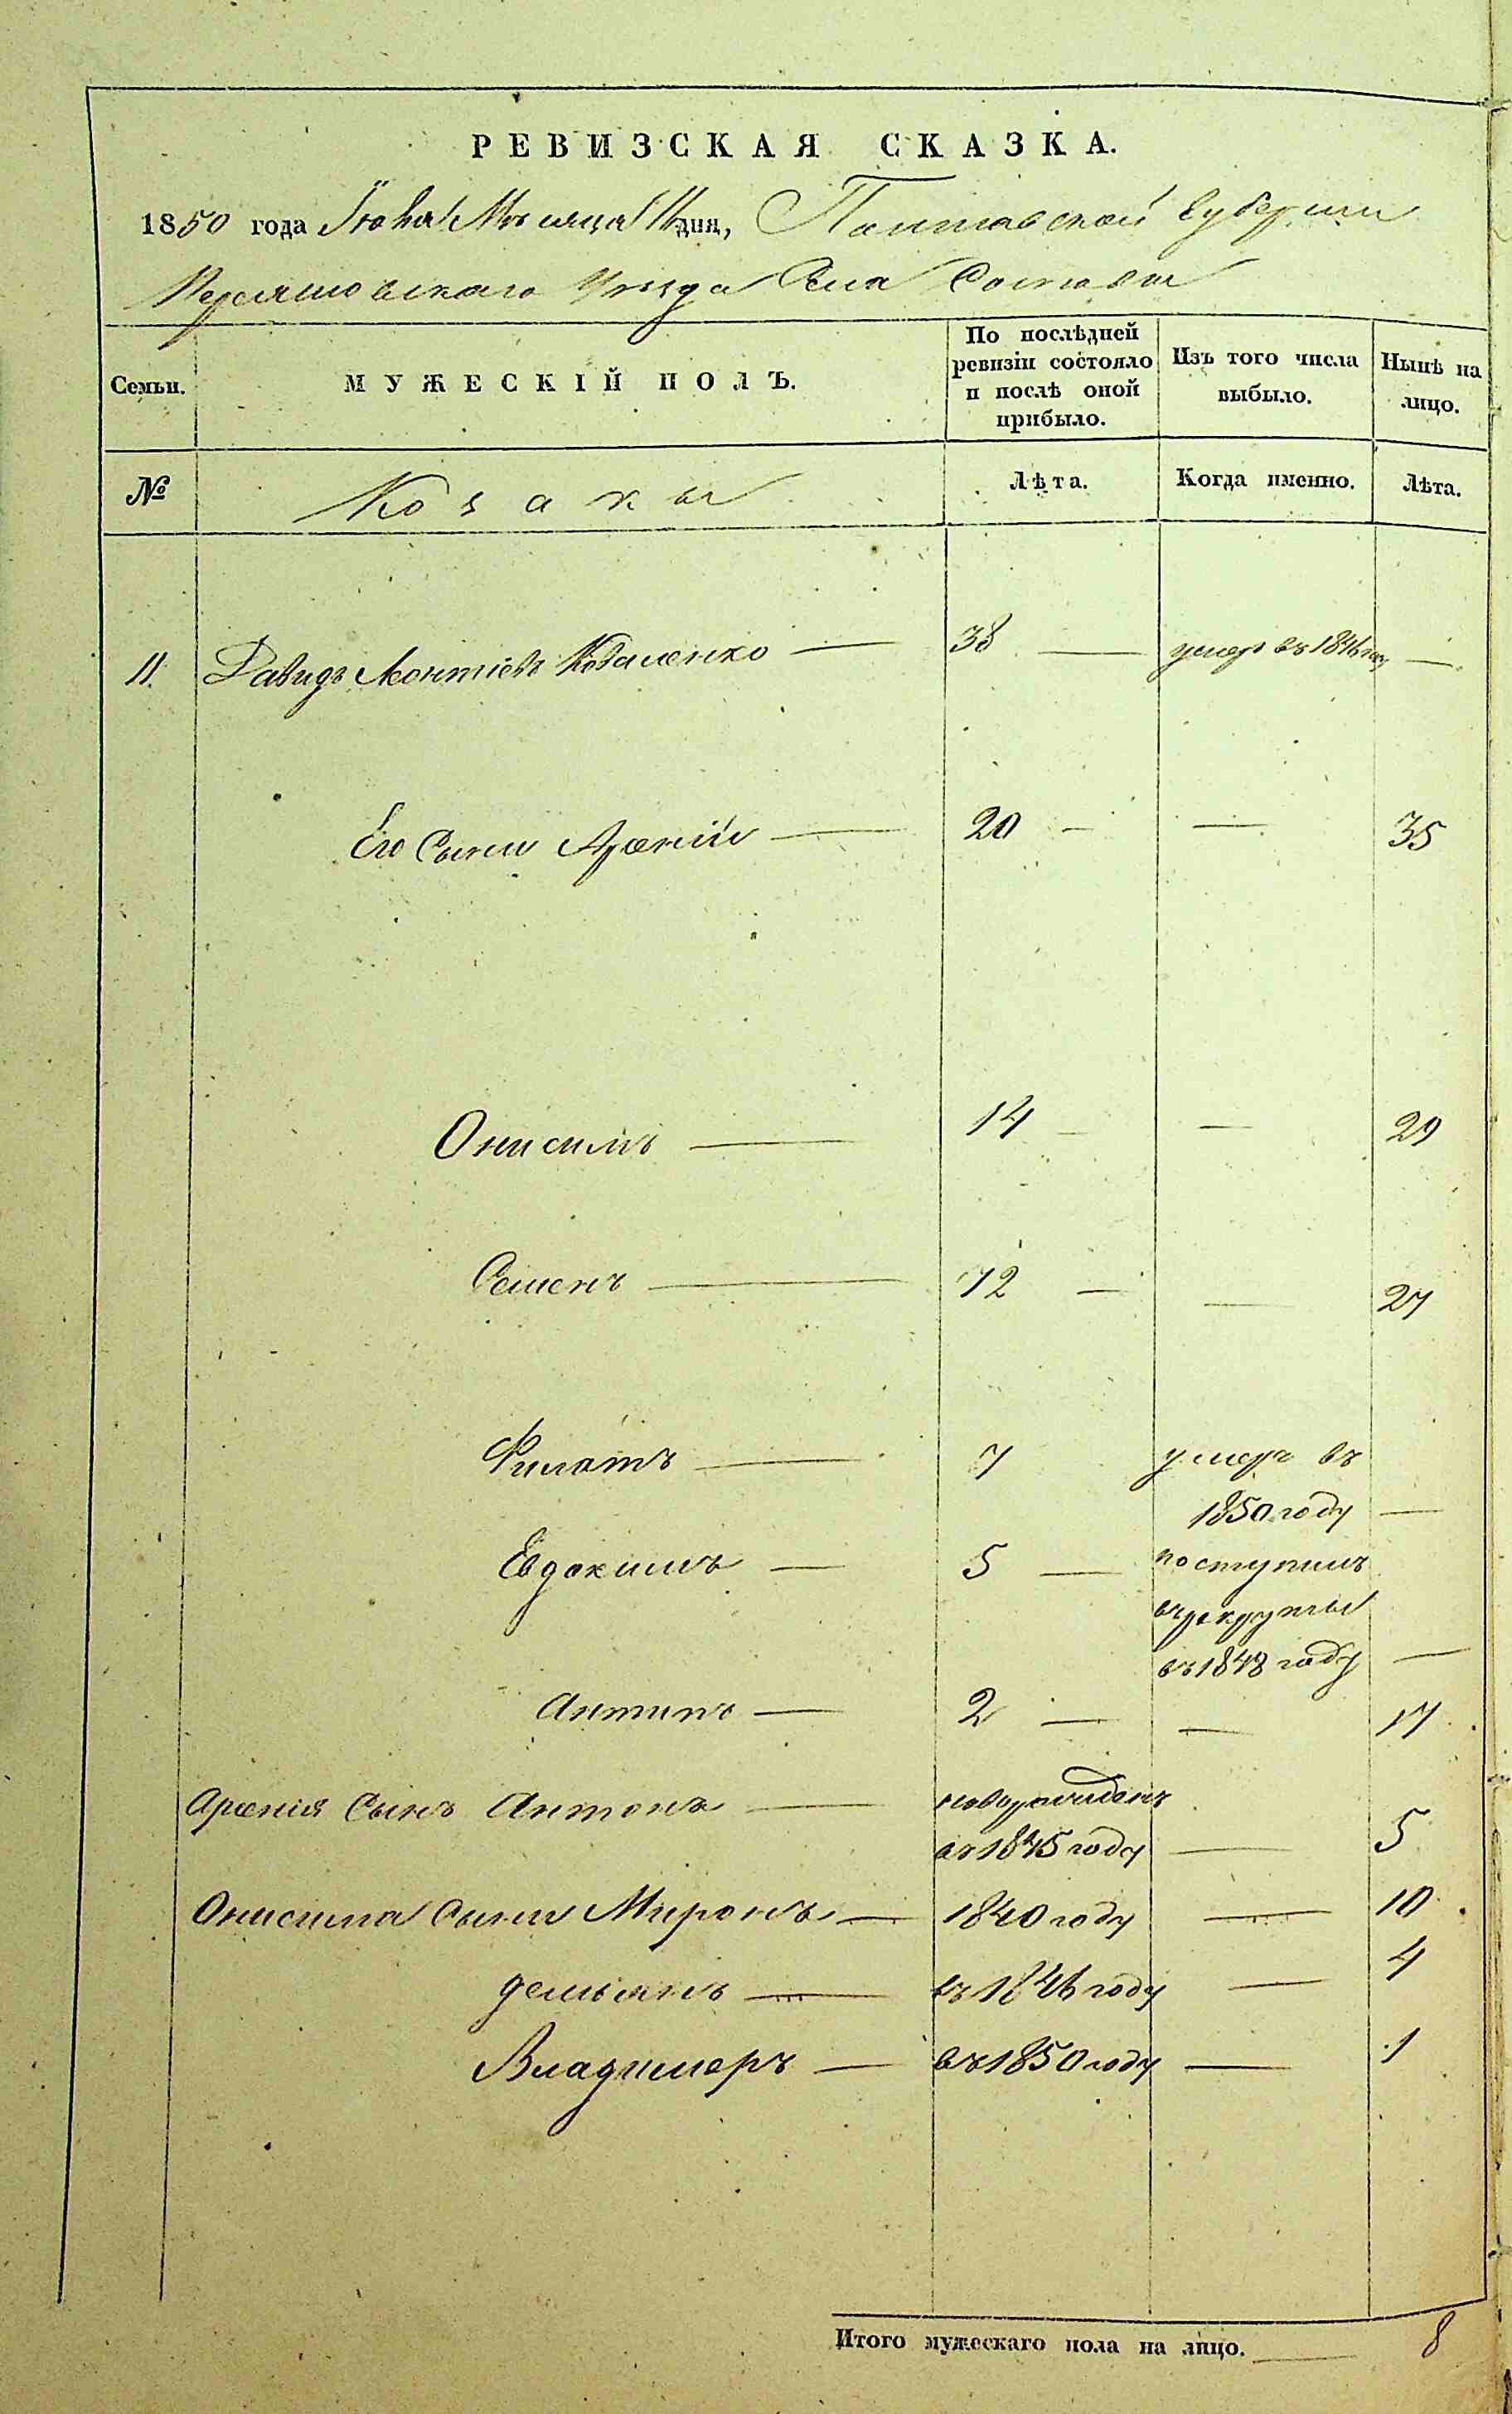 РЕВИЗСКАЯ СКАЗКА.
1850 года Іюня Мѣсяца 16 дня, Полтавской Губерніи
Переяшовскаго Уѣзда Села Сосновы
Семьи.
МУЖЕСКІЙ ПОЛЪ.
По послѣдней
ревизіи состояло
и послѣ оной
прибыло.
Изъ того числа
выбыло.
Нынѣ на
лицо.
№
Козаки
Лѣта.
Когда именно.
Лѣта.
11. Давидъ Леонтіевъ Коваленко — 38 — умеръ въ 1846 году —
Его Сыни Арсеній — 20 — — 35
Онисимъ — 14 — — 29
Семенъ — 12 — — 27
Филатъ — 7 умеръ въ
1850 году —
Евдокимъ — 5 — поступилъ
въ рекруты
въ 1848 году —
Антипъ — 2 — — 17
Арсенія Сынъ Антонъ — новорожденъ
въ 1845 году — 5
Онисима Сыни Миронъ — 1840 году — 10
Демьянъ — въ 1846 году — 4
Владимеръ — въ 1850 году — 1
Итого мужескаго пола на лицо. — 8